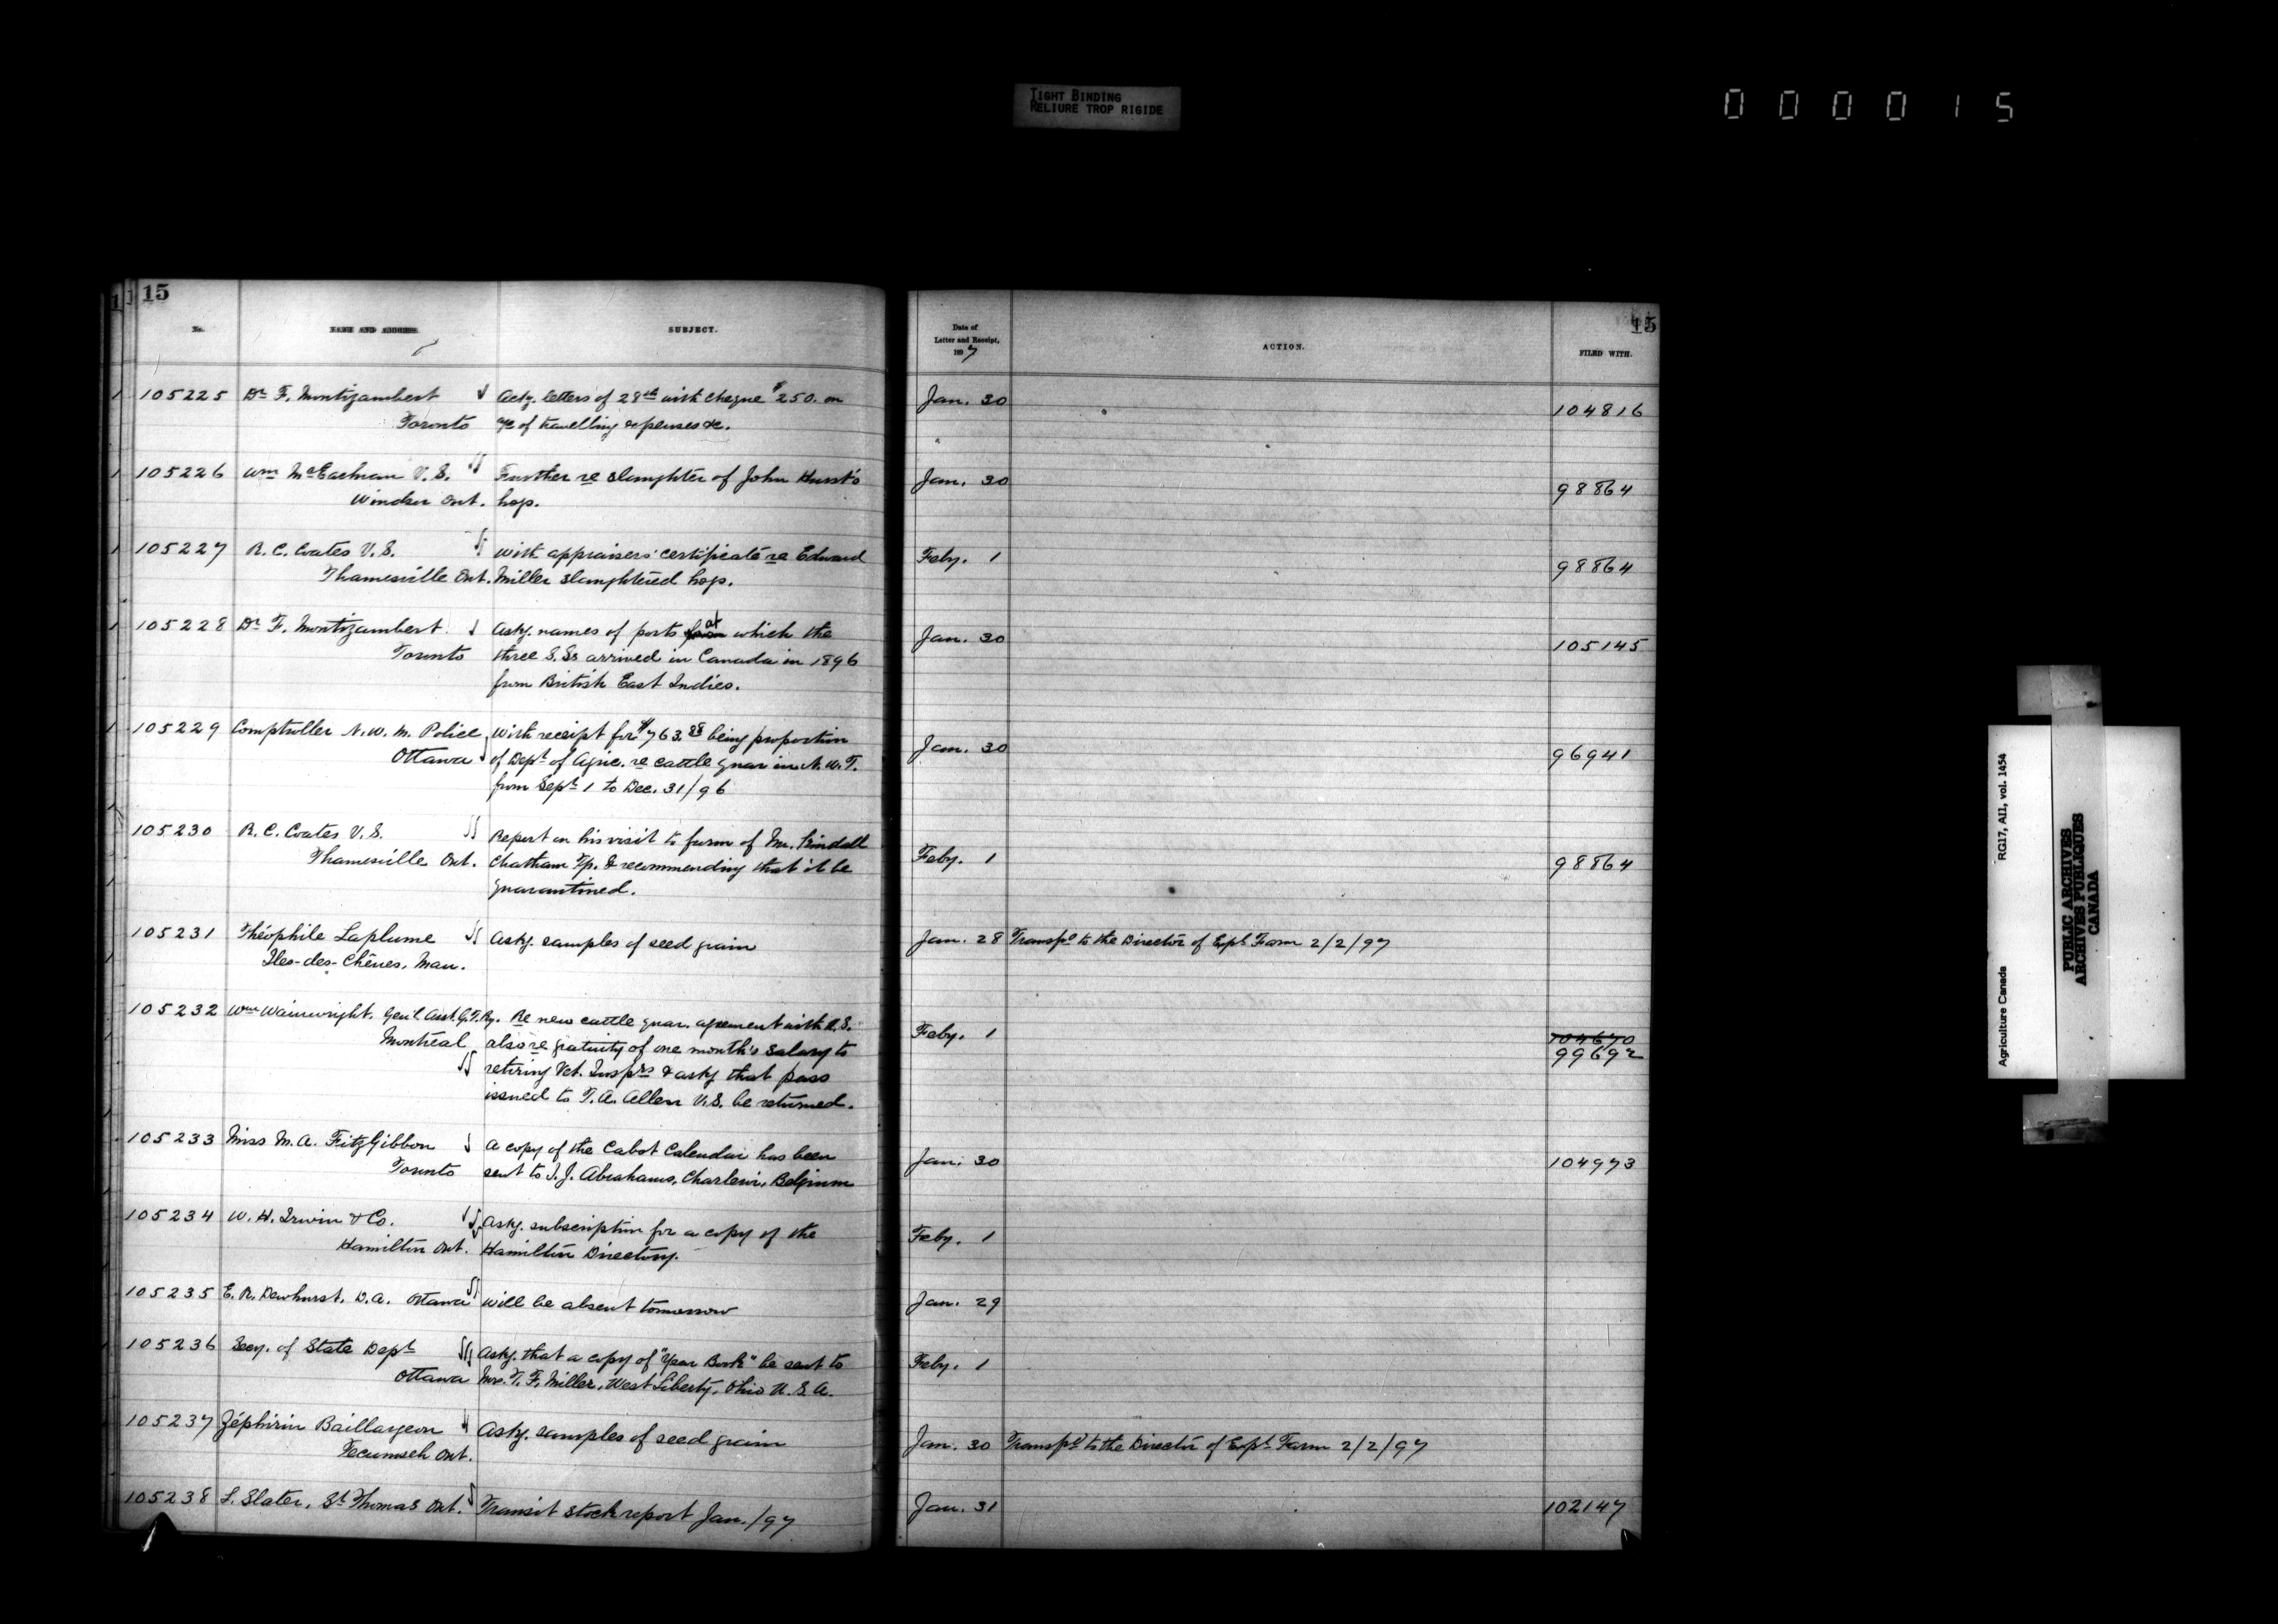 TIGHT BINDING
RELIURE TROP RIGIDE
0 0 0 0 1 5
15
No.
NAME AND ADDRESS.
SUBJECT.
105225 Dr F. Montizambert
Toronto
Ackg. letters of 28th with cheque $250. on
a/c of travelling expenses &c.
105226 Wm McEachran V.S.
Windsor Ont.
Further re slaughter of John Hurst's
hogs.
105227 R. C. Coates V.S.
Thamesville Ont.
With appraisers' certificate re Edward
Miller slaughtered hogs.
105228 Dr F. Montizambert.
Toronto
Askg. names of ports from at which the
three S.Ss arrived in Canada in 1896
from British East Indies.
105229 Comptroller N. W. M. Police
Ottawa
With receipt for $763.88 being proportion
of Dept of Agric. re cattle quar in N. W. T.
from Sept 1 to Dec. 31/96
105230 R. C. Coates V.S.
Thamesville Ont.
Report on his visit to farm of Mr.
Chatham Tp. & recommending that it be
quarantined.
105231 Théophile Laplume
Iles-des-Chênes, Man.
Askg. samples of seed grain
105232 Wm Wainwright, Gen'l Asst. G.T.Ry.
Montreal
Re new cattle quar. agreement with U.S.
also re gratuity of one month's salary to
retiring Vet. Insprs & askg that pass
issued to T. A. Allen V.S. be returned.
105233 Miss M. A. FitzGibbon
Toronto
A copy of the Cabot Calendar has been
sent to J. Abrahams, Charleroi, Belgium
105234 W. H. Irwin & Co.
Hamilton Ont.
Askg. subscription for a copy of the
Hamilton Directory.
105235 E. R. Dewhurst, D.A. Ottawa
Will be absent tomorrow
105236 Secy. of State Dept
Ottawa
Askg. that a copy of "Year Book" be sent to
Mrs. T. F. Miller, West Liberty, Ohio U.S.A.
105237 Zéphirin Baillargeon
Tecumseh Ont.
Askg. samples of seed grain
105238 L. Slater, St Thomas Ont.
Transit stock report Jan./97
15
Date of
Letter and Receipt,
1897
ACTION.
FILED WITH.
Jan. 30 104816
Jan. 30 98864
Feby. 1 98864
Jan. 30 105145
Jan. 30 96941
Feby. 1 98864
Jan. 28 Transfd to the Director of Expl Farm 2/2/97
Feby. 1 104670
99692
Jan. 30 104973
Feby. 1
Jan. 29
Feby. 1
Jan. 30 Transfd to the Director of Expl Farm 2/2/97
Jan. 31 102147
Agriculture Canada
RG17, AII, vol. 1454
PUBLIC ARCHIVES
ARCHIVES PUBLIQUES
CANADA